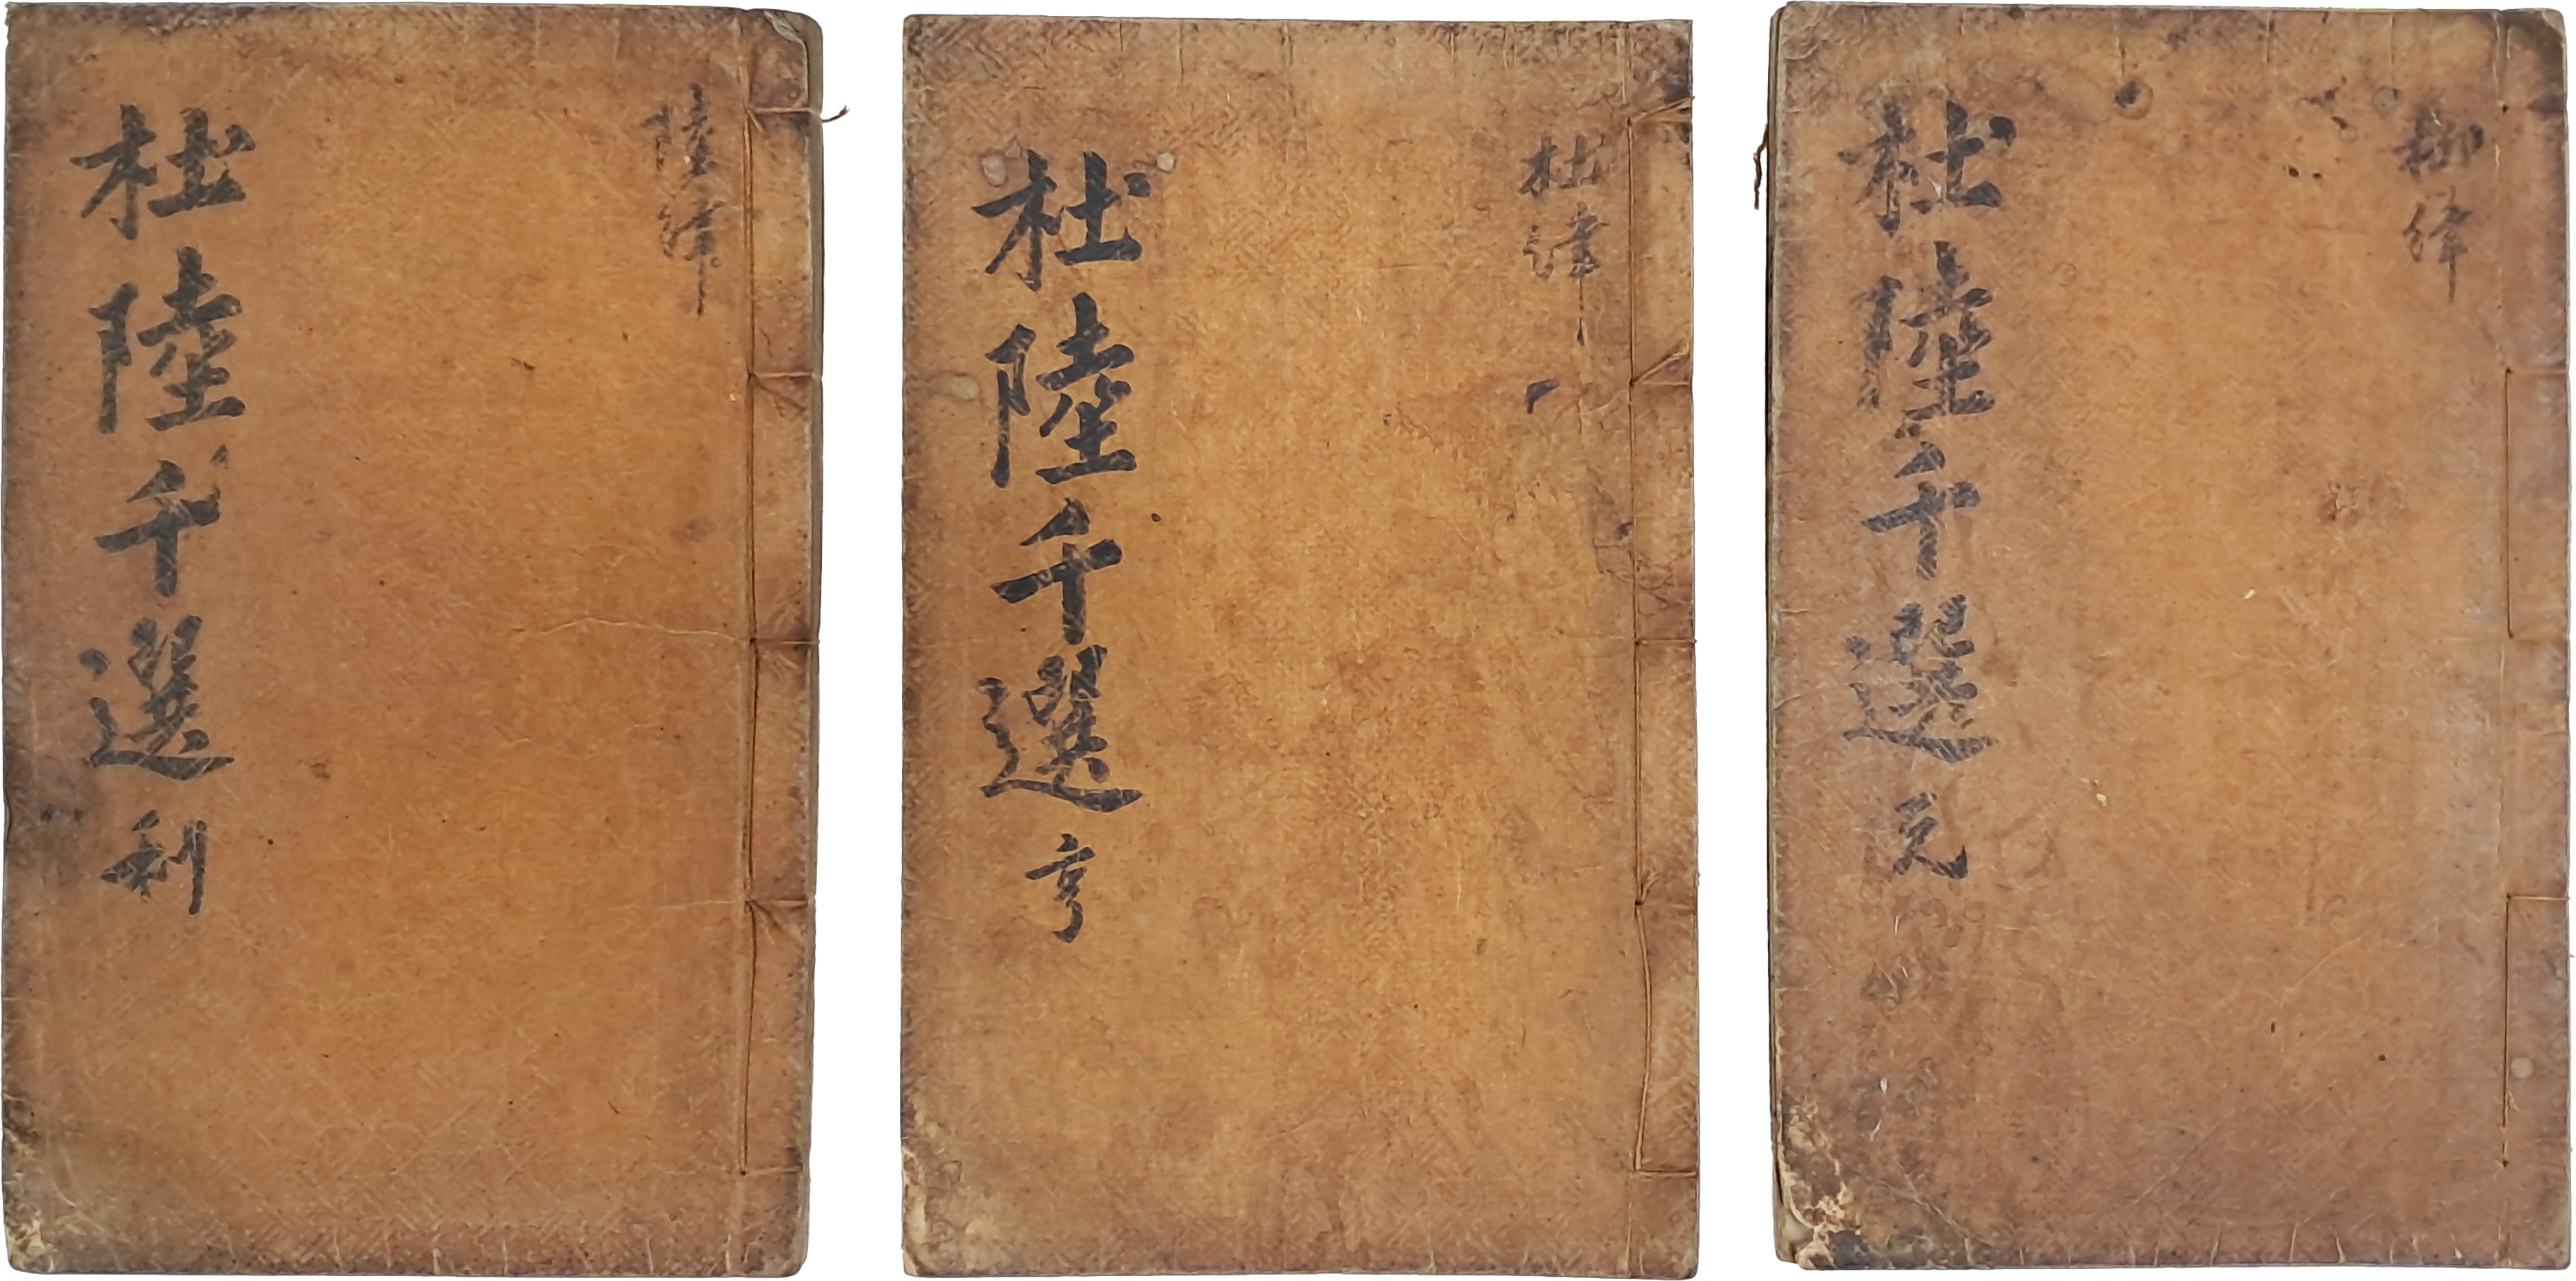 律
杜陸千選 元
杜律
杜陸千選 亨
陸律
杜陸千選 利